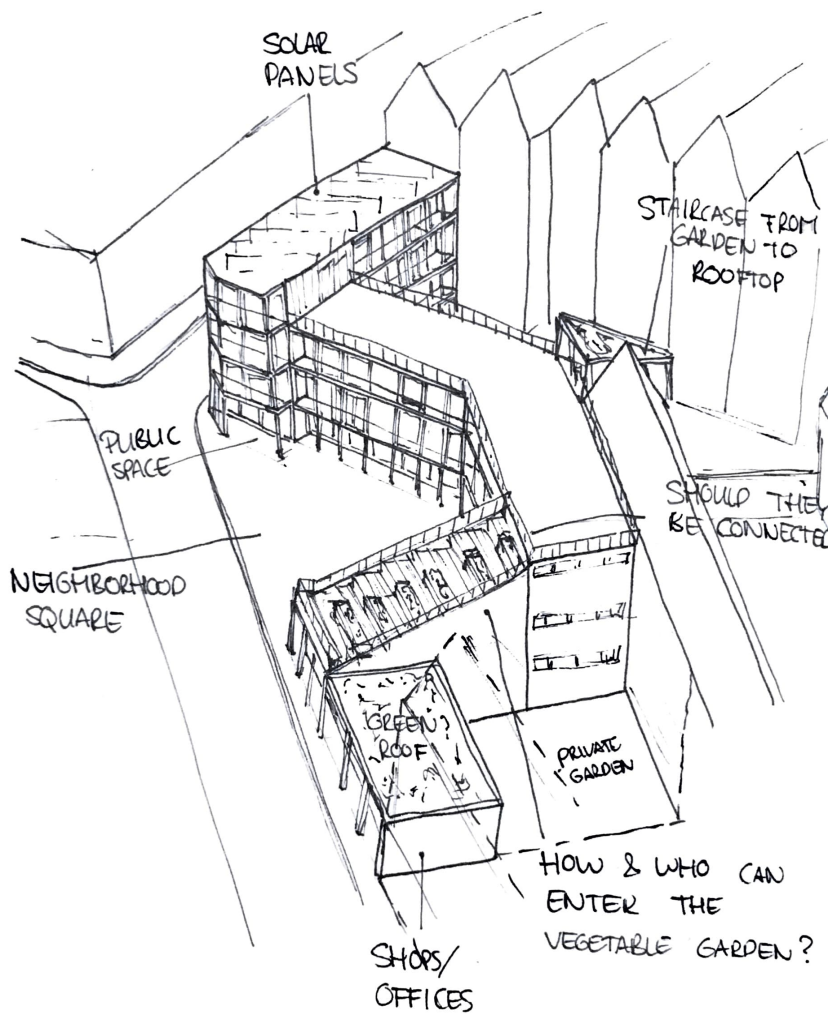 SOLAR
PANELS
STAIRCASE FROM
GARDEN TO
ROOFTOP
PUBLIC
SPACE
SHOULD THEY
BE CONNECTED
NEIGHBORHOOD
SQUARE
GREEN?
ROOF
PRIVATE
GARDEN
HOW & WHO CAN
ENTER THE
VEGETABLE GARDEN?
SHOPS/
OFFICES